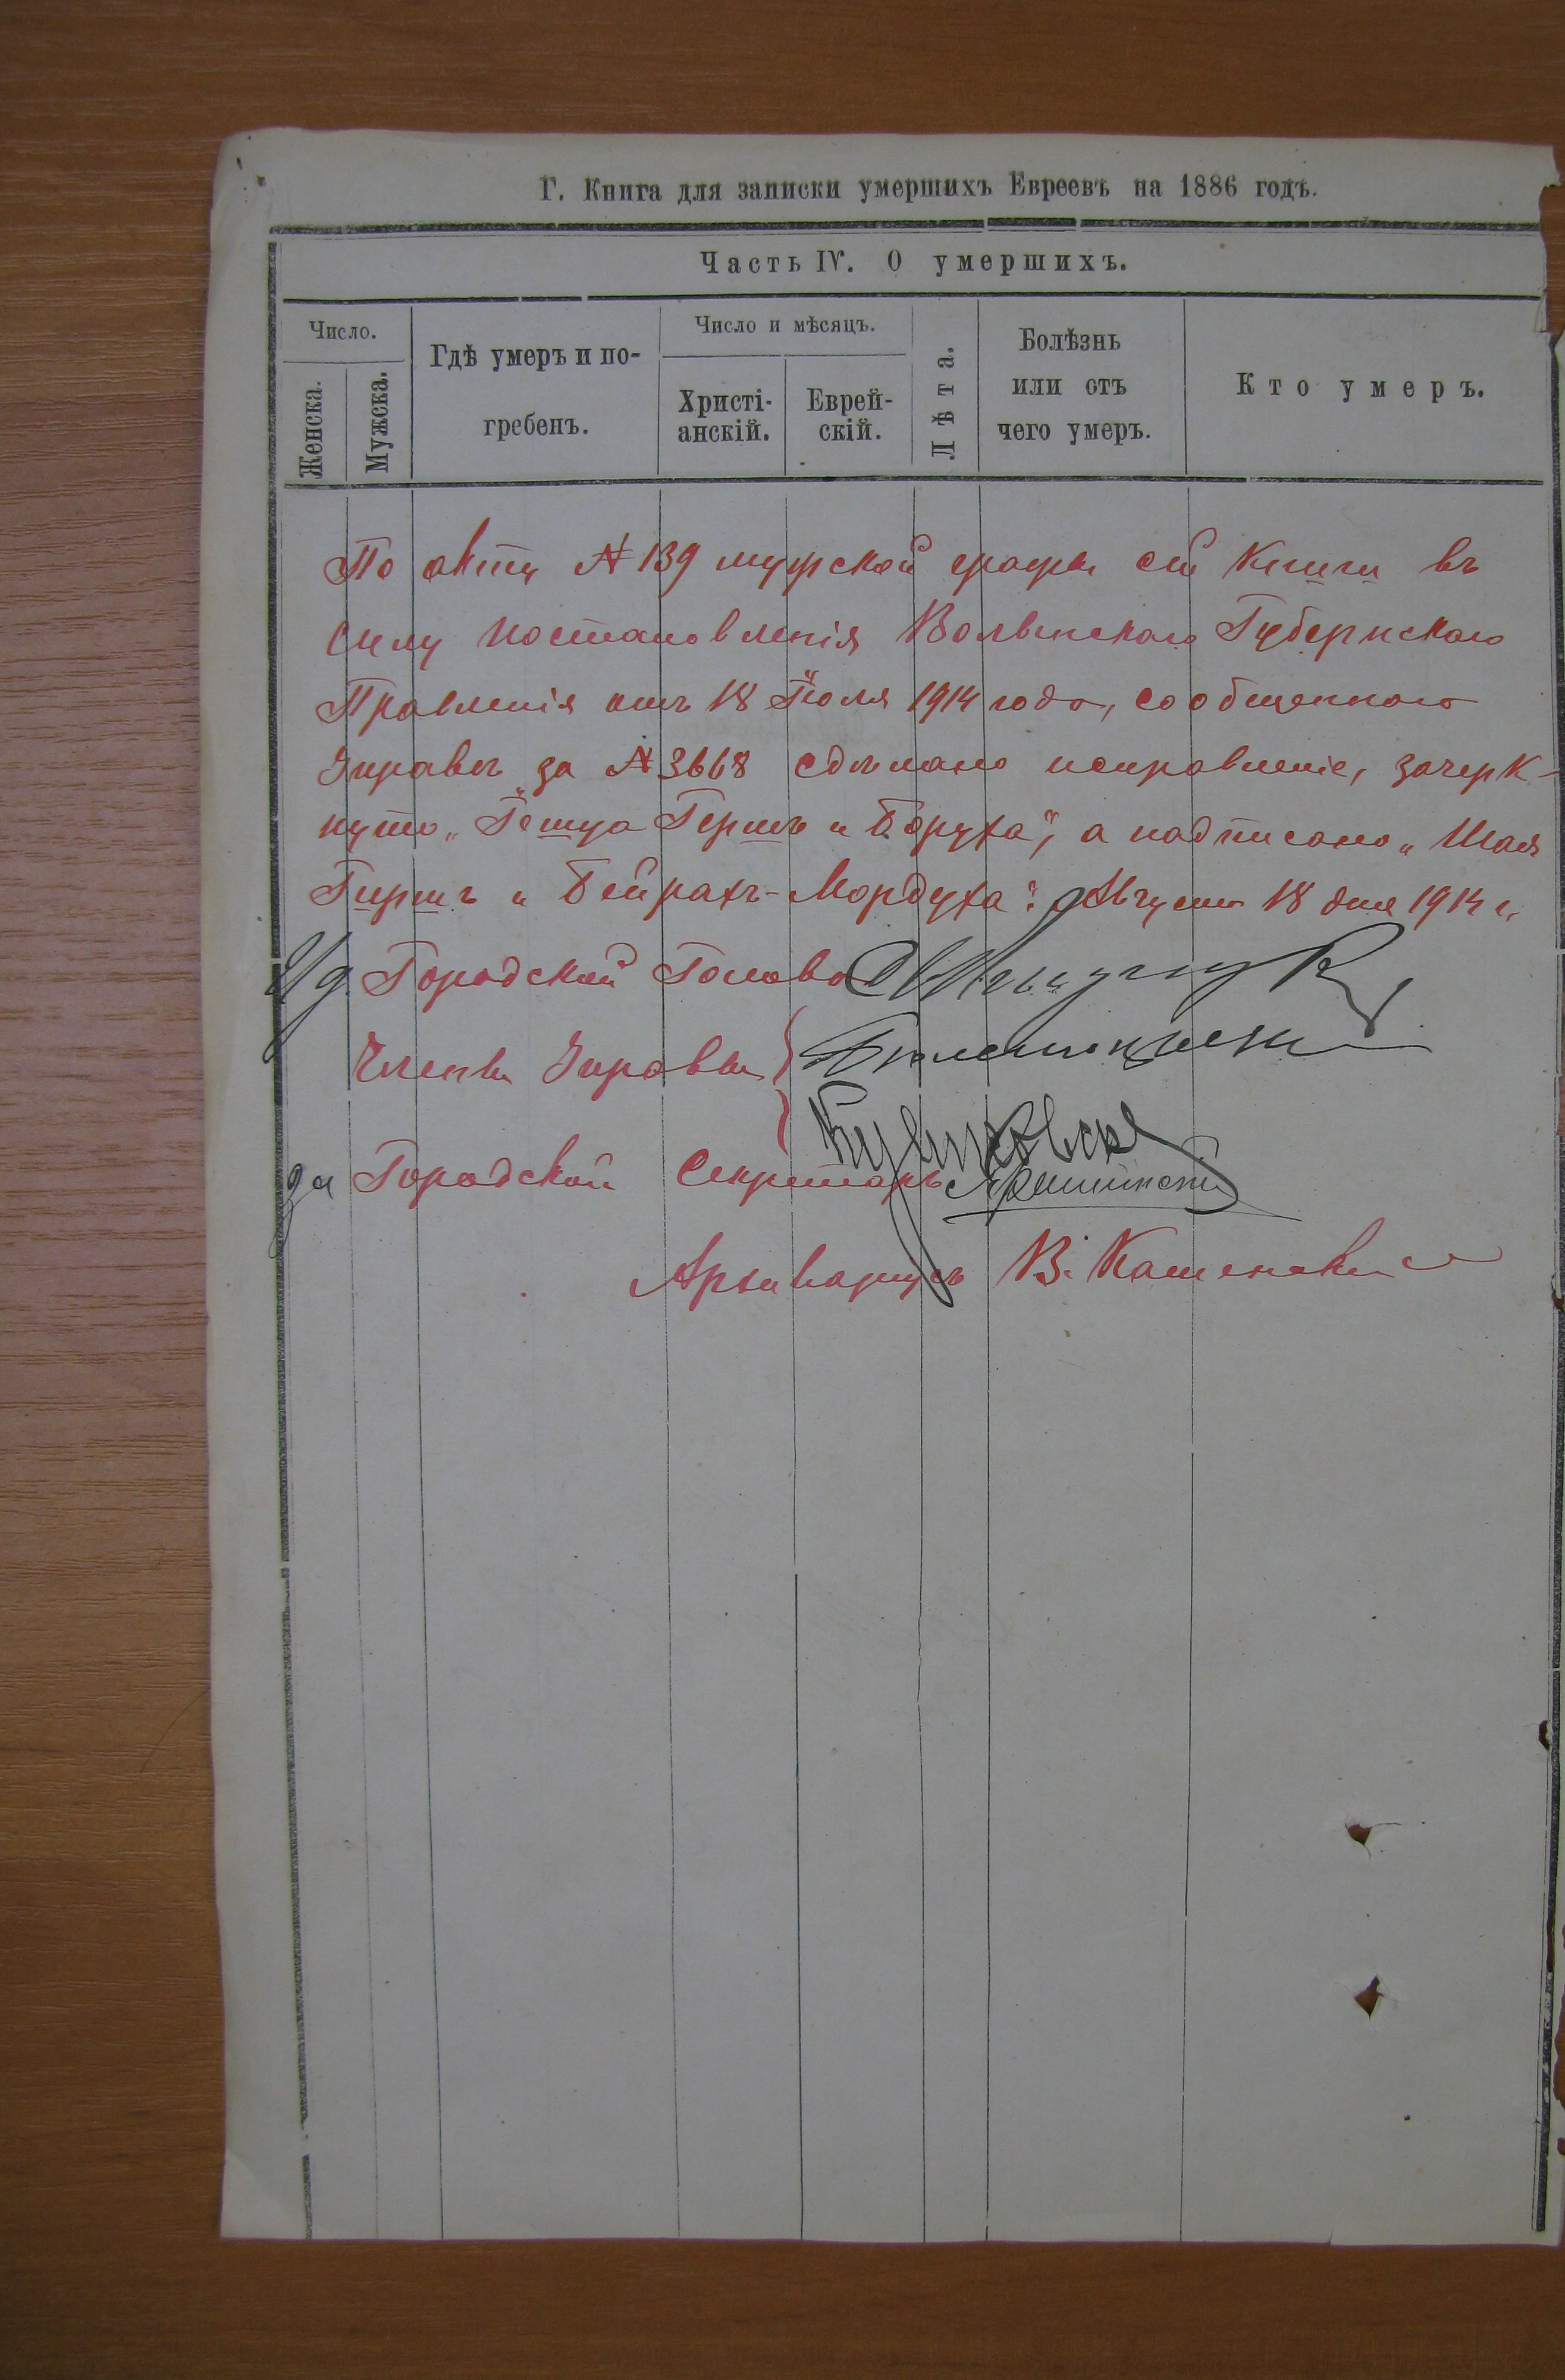 Г. Книга для записки умершихъ Евреевъ на 1886 годъ.
Часть IV. О умершихъ.
Число.
Женска.
Мужска.
Гдѣ умеръ и по-
гребенъ.
Число и мѣсяцъ.
Христі-
анскій.
Еврей-
скій.
Лѣта.
Болѣзнь
или отъ
чего умеръ.
Кто умеръ.
По акту № 139 мужской графы сей Книги въ
силу постановленія Волынскаго Губернскаго
Правленія отъ 18 Іюля 1914 года, сообщеннаго
Управѣ за № 3668 сдѣлано исправленіе, зачерк-
нуто „Іешуа Гершъ и Боруха", а надписано „Шая
Гиршъ и Бейрахъ-Мордуха". Августа 18 дня 1914 г.
И д. Городской Голова
Члены Управы
За Городской Секретарь
Архиваріусъ В.